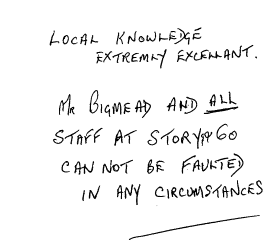 LOCAL KNOWLEDGE
EXTREMLY EXCELLANT.
MR BIGMEAD AND ALL
STAFF AT STORYS GO
CAN NOT BE FAULTED
IN ANY CIRCUMSTANCES